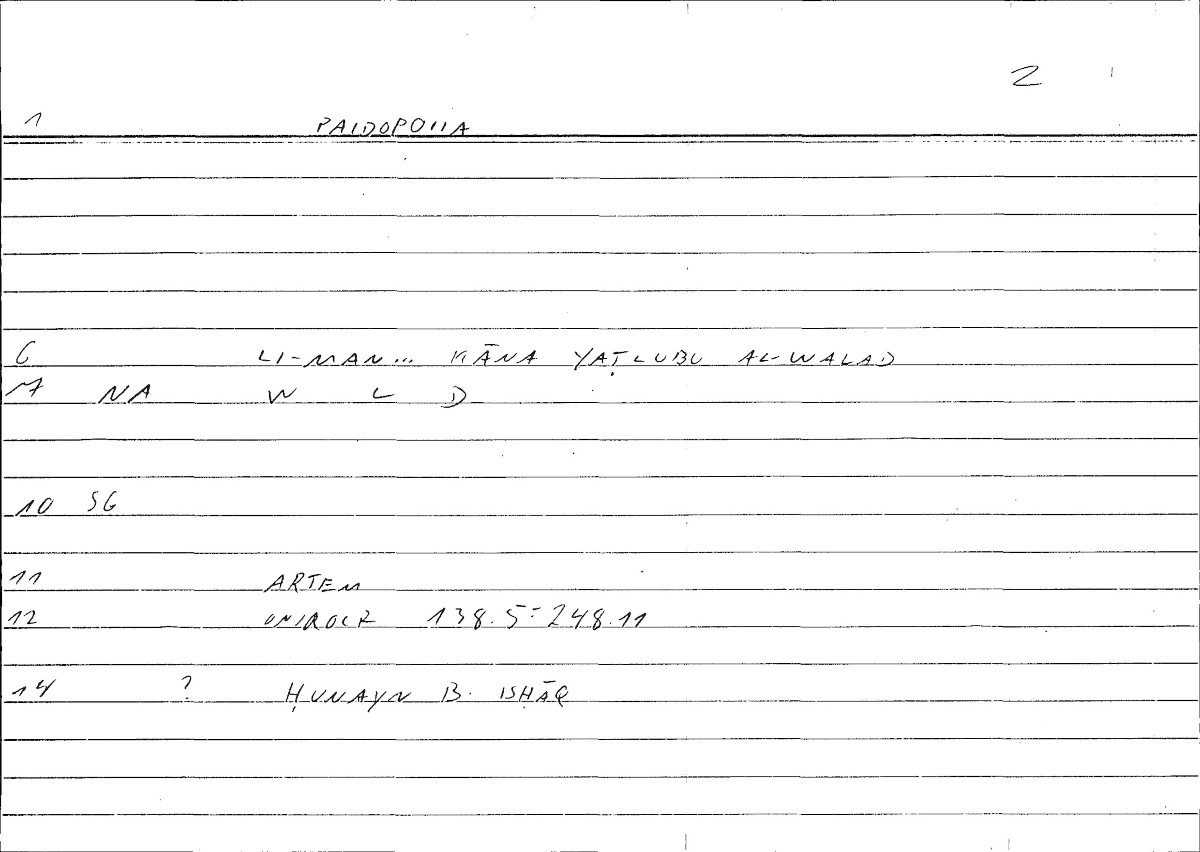 2
1 PAIDOPOIIA
6 LI-MAN... KĀNA YAṬLUBU AL-WALAD
7 NA W L D
10 SG
11 ARTEM
12 ONIROCR 138.5-248.11
14 ? ḤUNAYN B. ISḤĀQ